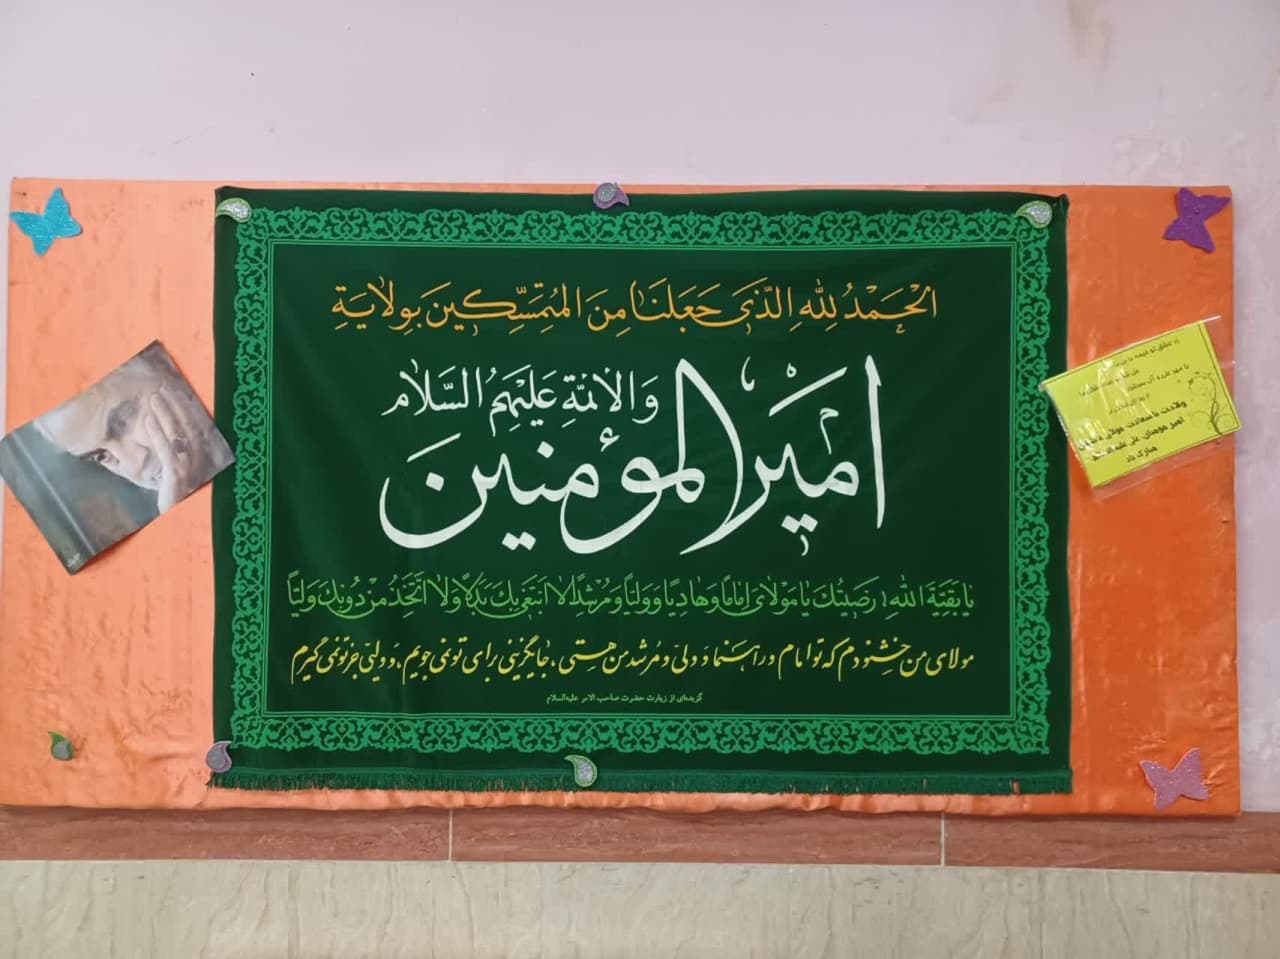 الْحَمْدُ لِلّٰهِ الَّذی جَعَلَنَا مِنَ الْمُتَمَسِّکِینَ بِوِلَایَةِ
اَمیرِالمُؤمِنینَ
وَالْاَئِمَّةِ عَلَیْهِمُ السَّلَام
یَا بَقِیَّةَ اللهِ! رَضِیتُکَ یَا مَوْلَایَ اِمَاماً وَهَادِیاً وَوَلِیّاً وَمُرْشِداً لَا اَبْتَغِی بِکَ بَدَلاً وَلَا اَتَّخِذُ مِنْ دُونِکَ وَلِیّاً
مولای من خشنودم که تو امام و راهنما و ولی و مرشد من هستی، جایگزینی برای تو نمی جویم، و ولیّی جز تو نمی گیرم
گزیده‌ای از زیارت حضرت صاحب الامر علیه‌السلام
ولادت با سعادت مولای
امیر مومنان، علی علیه
مبارک باد